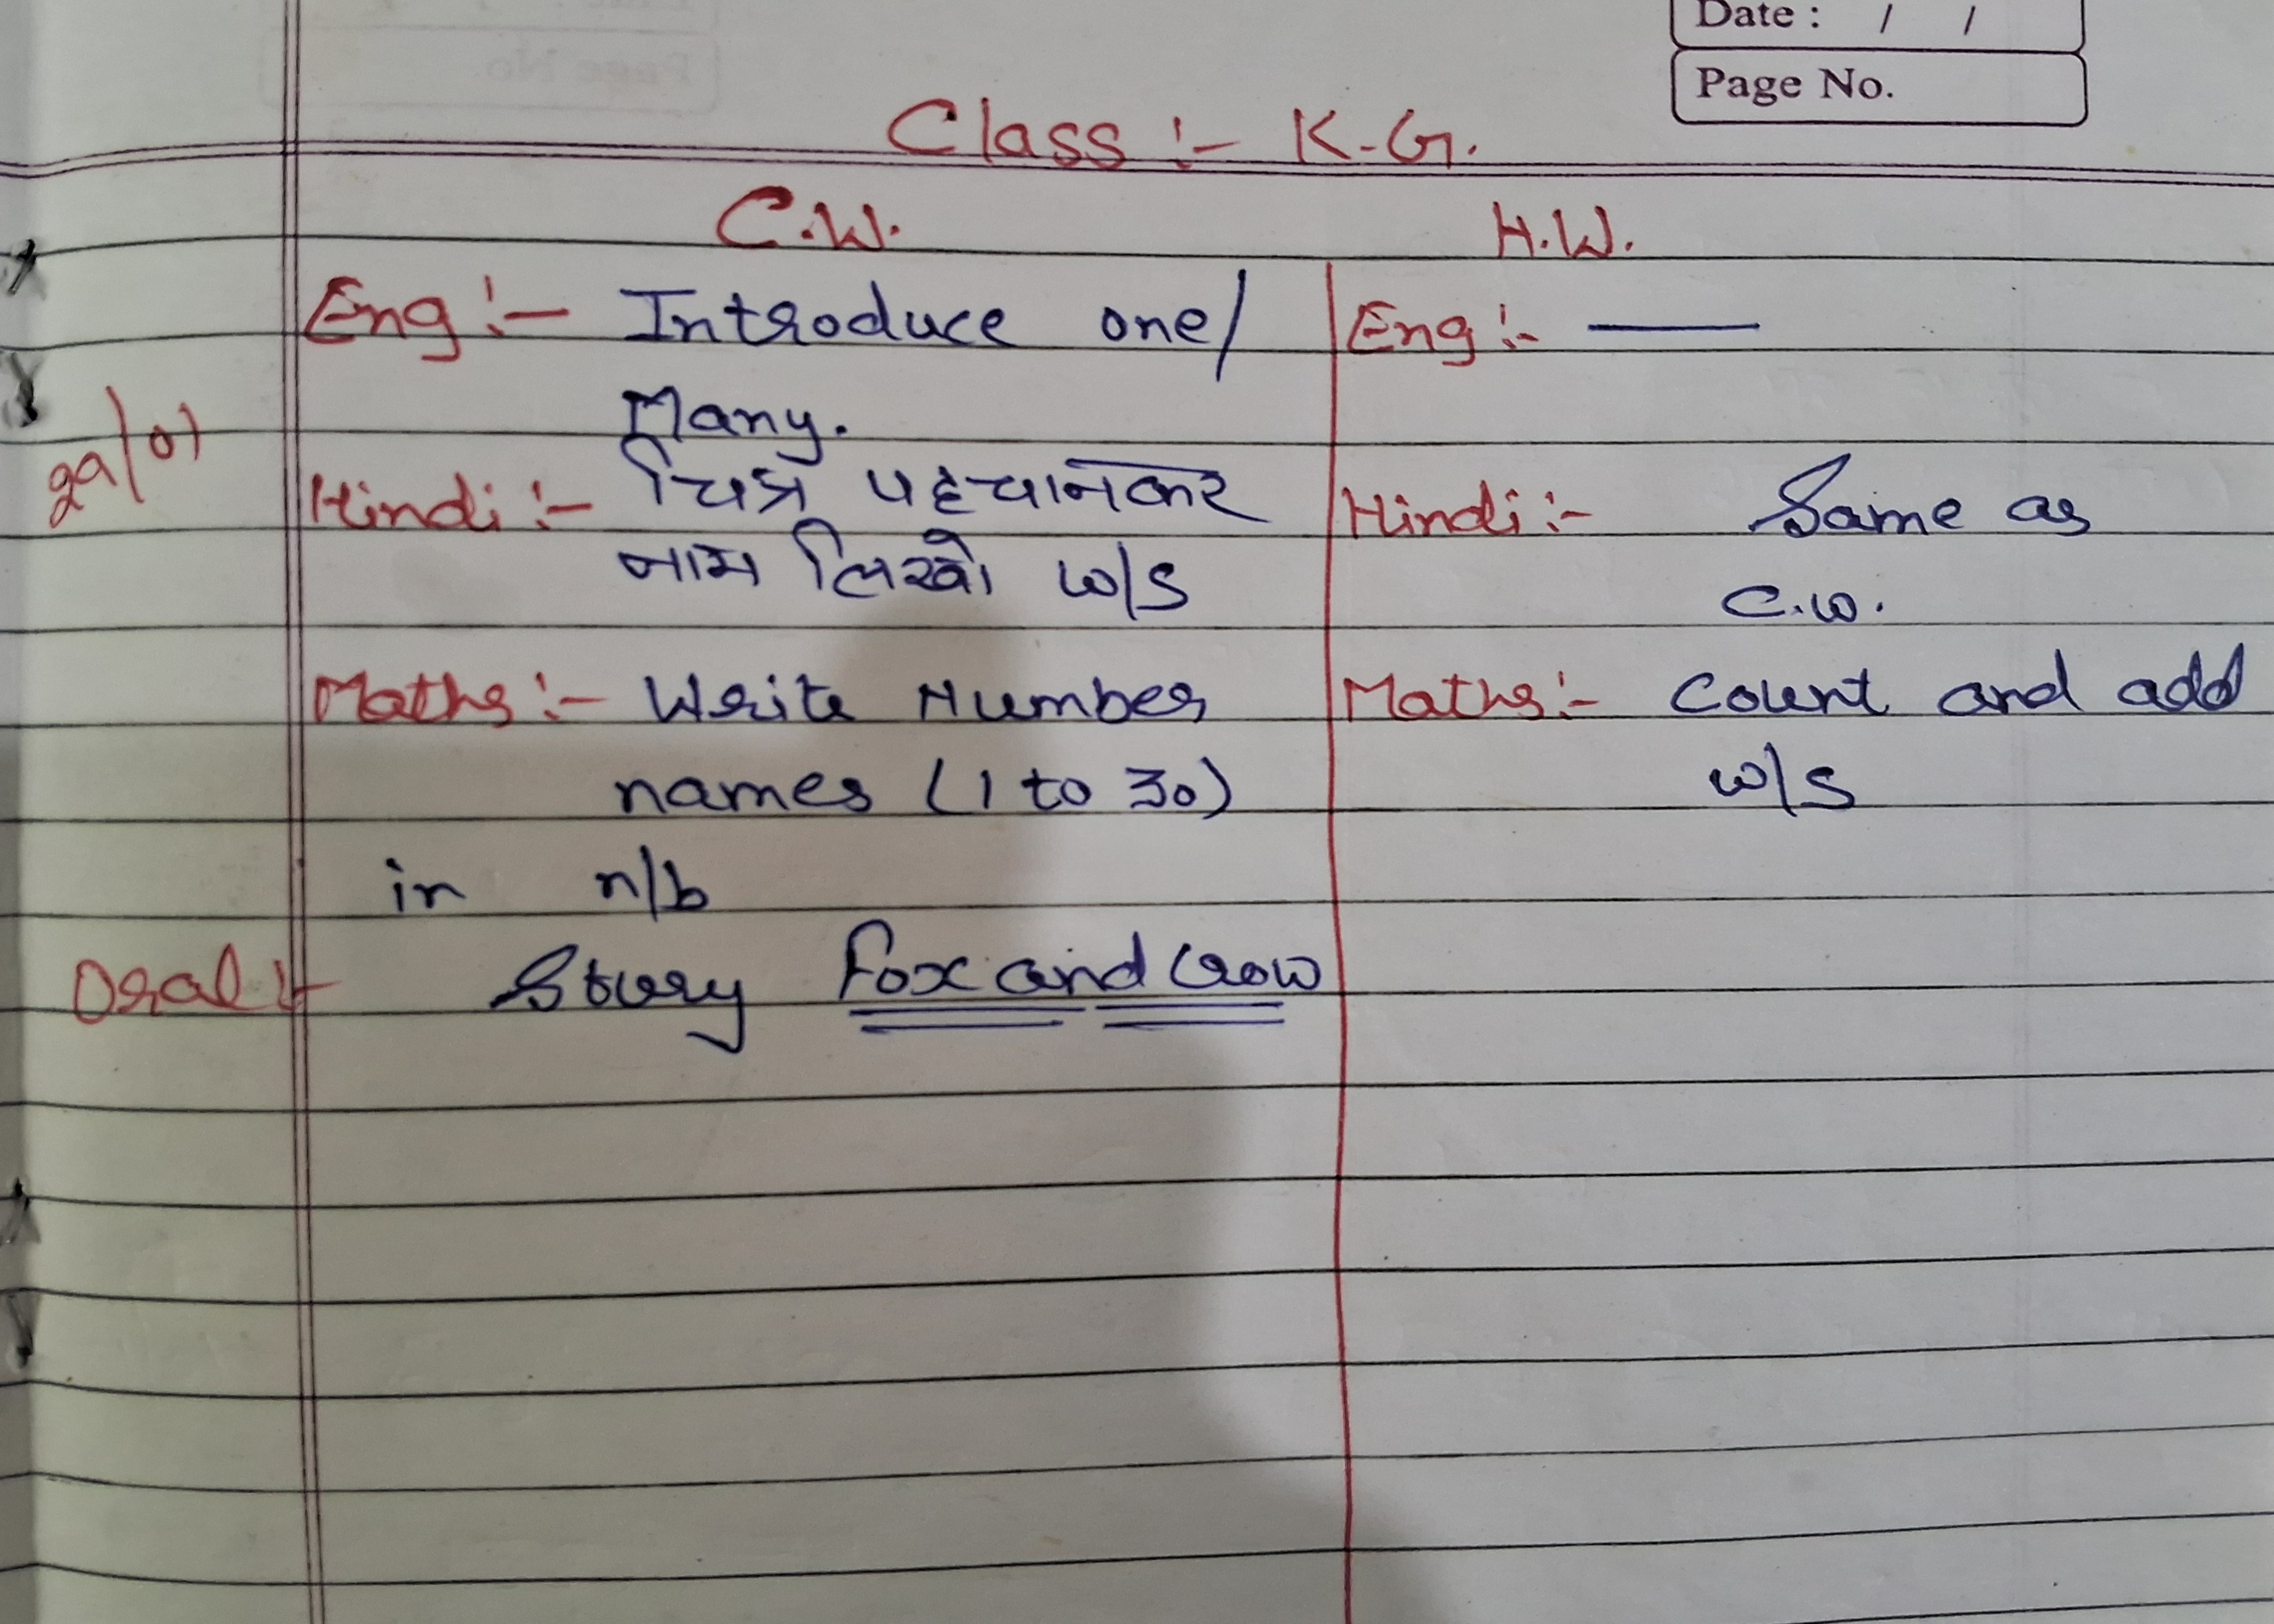 Date : / /
Page No.
Class :- K.G.
C.W.
H.W.
Eng :- Introduce one/
Many.
29/01
Hindi :- चित्र पहचानकर
नाम लिखो w/s
Maths :- Write Number
names (1 to 30)
in n/b
Oral :- Story Fox and Crow
Eng :- —
Hindi :- Same as
C.W.
Maths :- Count and add
w/s